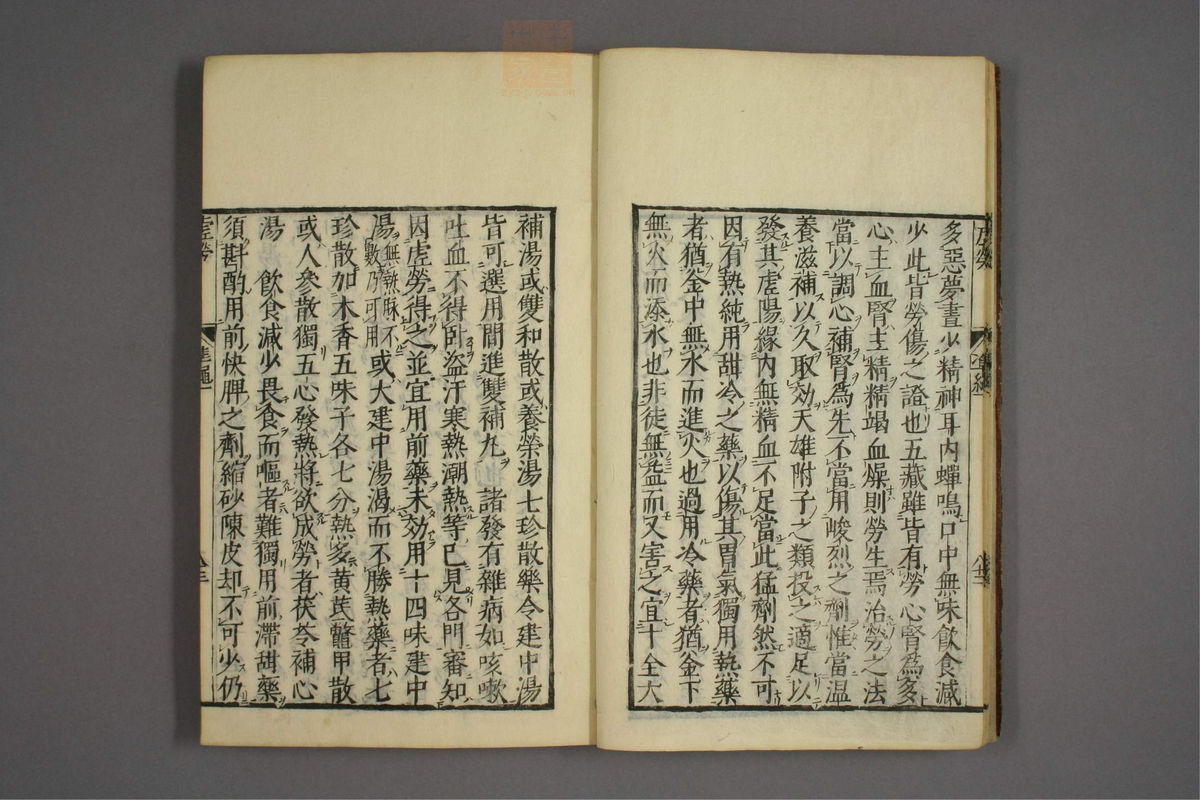 多惡夢晝少精神耳內蟬鳴口中無味飲食減
少此皆勞傷之證也五藏雖皆有勞心腎為多
心主血腎主精精竭血燥則勞生焉治勞之法
當以調心補腎為先不當用峻烈之劑惟當溫
養滋補以久取効天雄附子之類投之適足以
發其虛陽緣內無精血不足當此猛劑然不可
因有熱純用甜冷之藥以傷其胃氣獨用熱藥
者猶釜中無水而進火也過用冷藥者猶釜下
無火而添水也非徒無益而又害之宜十全大
補湯或雙和散或養榮湯七珍散藥令建中湯
皆可選用間進雙補丸 諸發有雜病如咳嗽
吐血不得卧盜汗寒熱潮熱等已見各門審知
因虛勞得之並宜用前藥未効用十四味建中
湯無熱脉不數乃可用或大建中湯渴而不勝熱藥者七
珍散加木香五味子各七分熱多黃茋鼈甲散
或人參散獨五心發熱將欲成勞者茯苓補心
湯 飲食減少畏食而嘔者難獨用前滯甜藥
須斟酌用前快脾之劑縮砂陳皮却不可少仍
虛勞